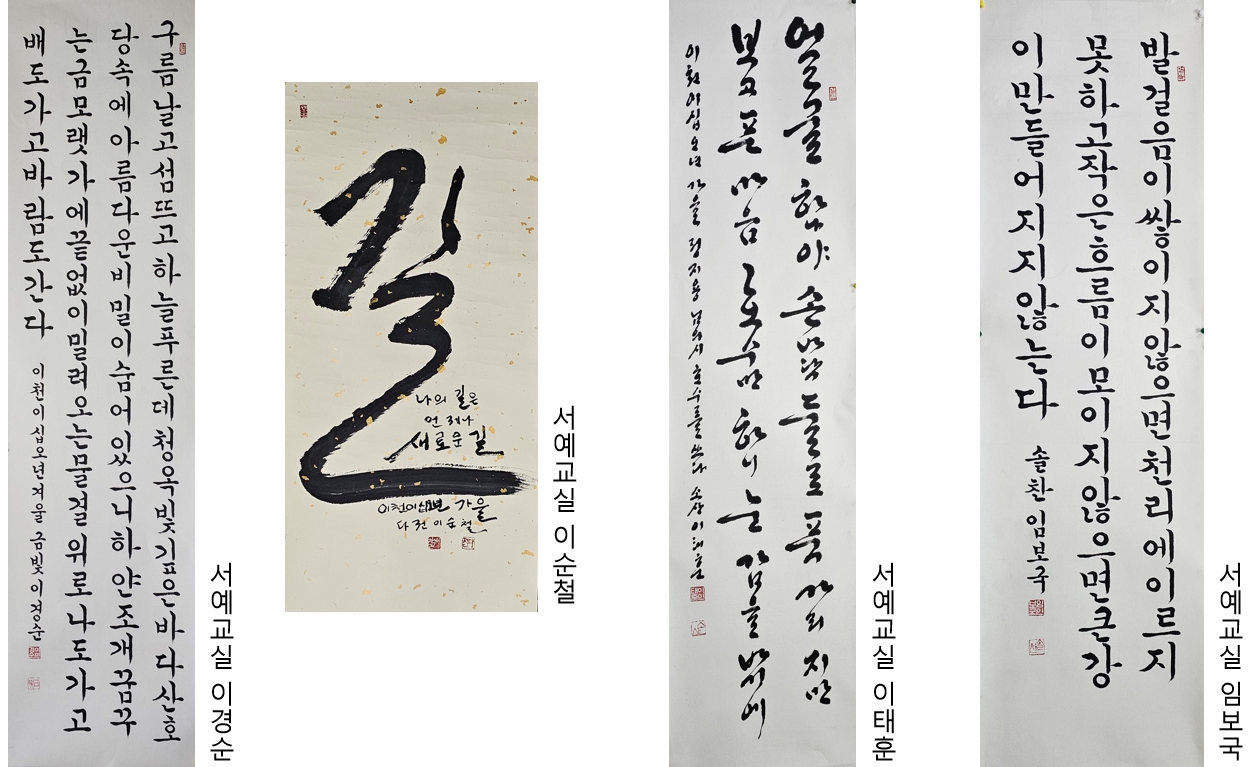 구름날고섬뜨고하늘푸른데청옥빛깊은바다산호
당속에아름다운비밀이숨어있으니하얀조개꿈꾸
는금모랫가에끝없이밀려오는물결위로나도가고
배도가고바람도간다 이천이십오년겨울금빛이경순
서예교실 이경순
길
나의 길은
언제나
새로운 길
이천이십오년 가을
다전 이순철
서예교실 이순철
얼굴 하나야 손바닥 둘로 폭 가리지만
보고픈 마음 호수만 하니 눈 감을 밖에
이천이십오년 가을 정지용 님의 시 호수를 쓰다 소상 이태훈
서예교실 이태훈
발걸음이쌓이지않으면천리에이르지
못하고작은흐름이모이지않으면큰강
이만들어지지않는다 솔찬임보국
서예교실 임보국